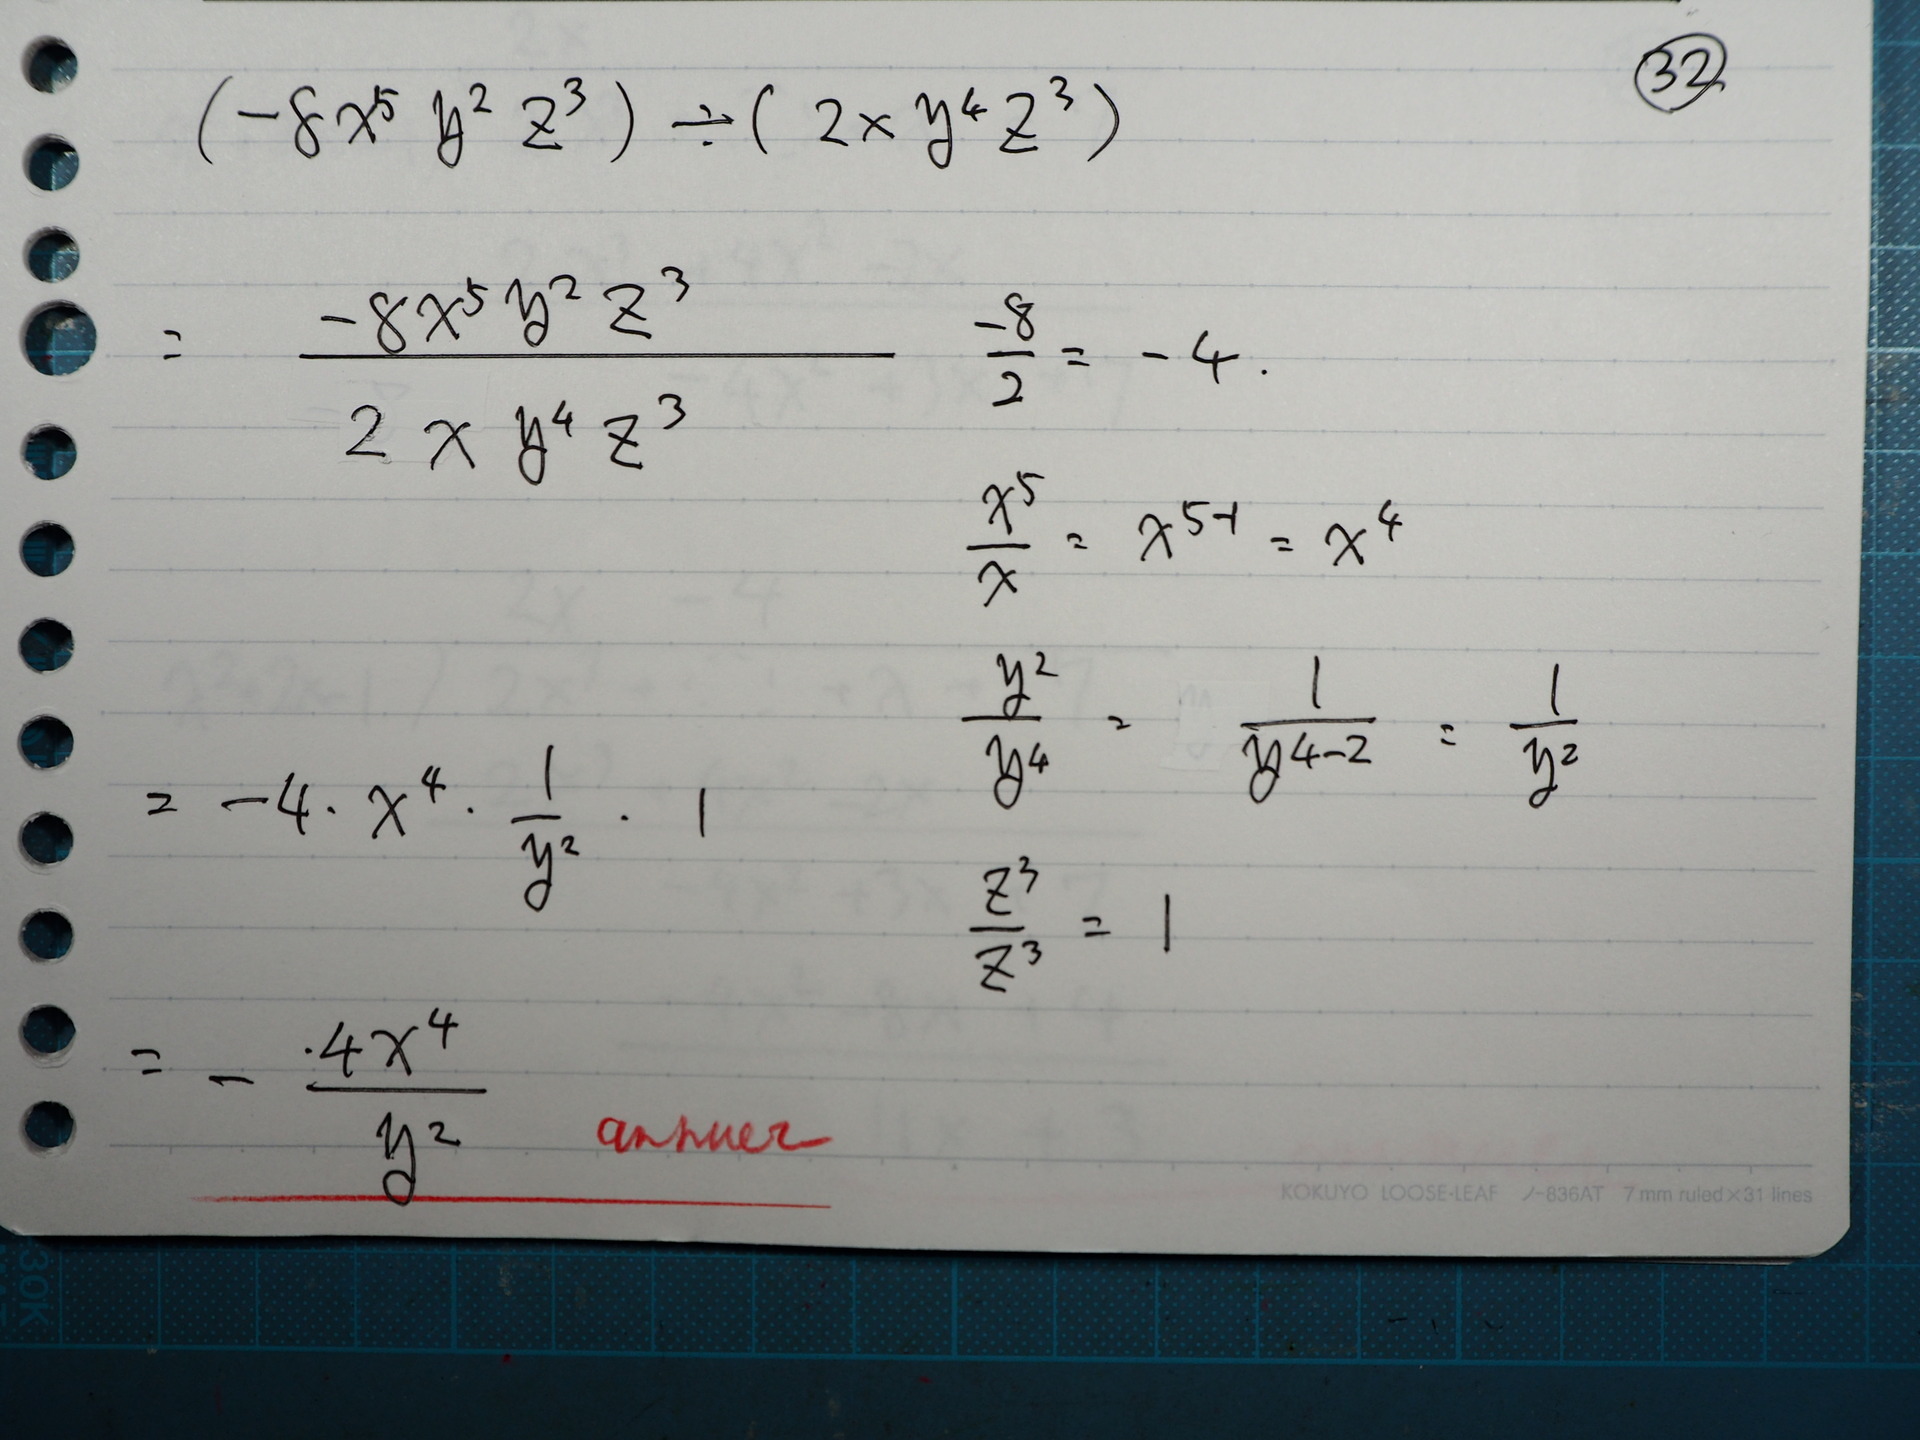 32
(-8x⁵ y² z³) ÷ (2x y⁴ z³)
= -8x⁵ y² z³ / 2 x y⁴ z³
-8/2 = -4.
x⁵/x = x⁵⁻¹ = x⁴
y²/y⁴ = 1/y⁴⁻² = 1/y²
z³/z³ = 1
= -4 · x⁴ · 1/y² · 1
= - 4x⁴/y² answer
KOKUYO LOOSE-LEAF ノ-836AT 7 mm ruled×31 lines